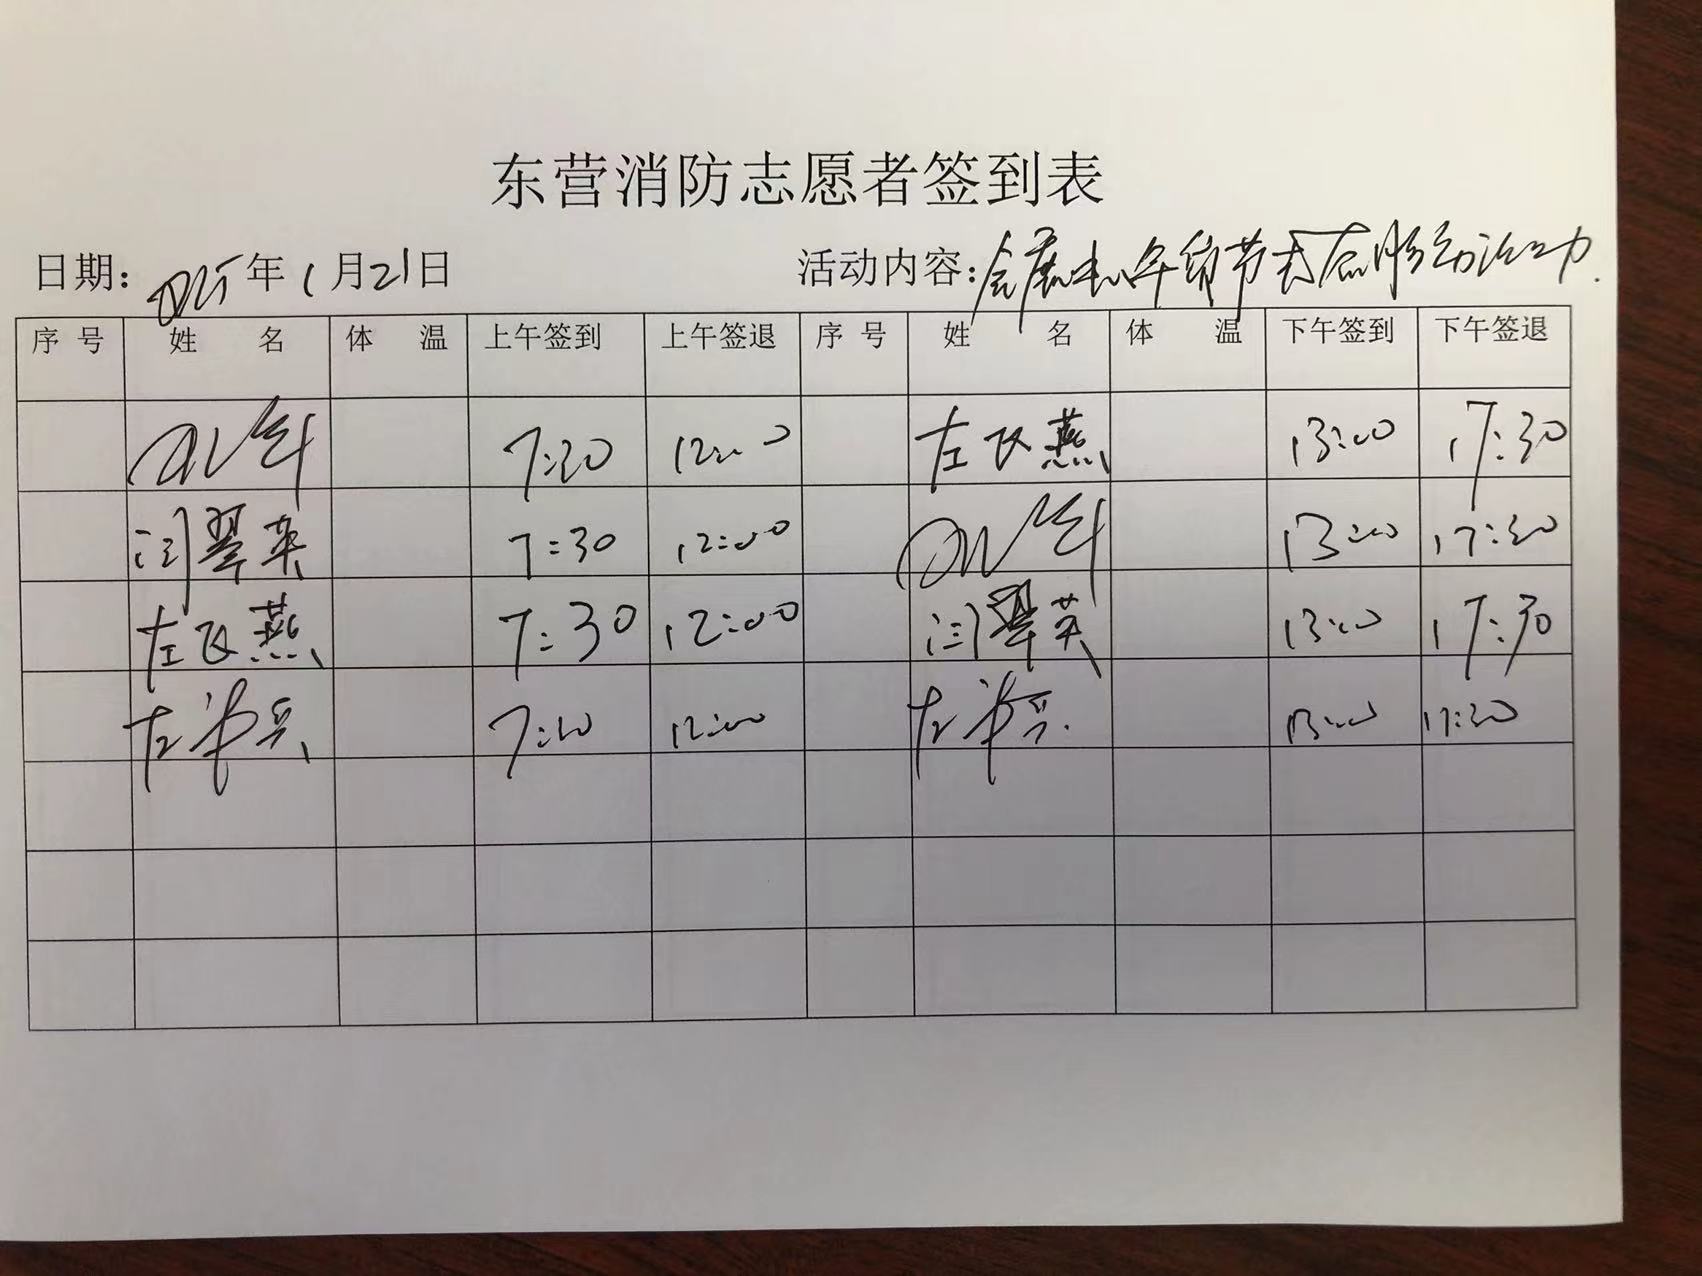 东营消防志愿者签到表
日期: 2025年1月21日 活动内容: 会展中心年货节志愿服务活动.
序号 姓名 体温 上午签到 上午签退 序号 姓名 体温 下午签到 下午签退
7:30 12:00 左改燕 13:00 17:30
闫翠英 7:30 12:00 13:00 17:30
左改燕 7:30 12:00 闫翠英 13:00 17:30
左 7:30 12:00 左 13:00 17:30